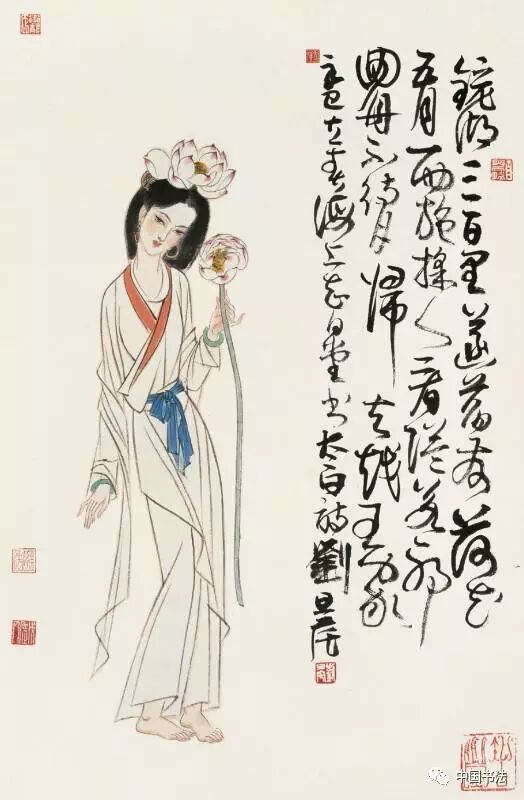 鏡湖三百里菡萏發荷花
五月西施採人看隘若耶
回舟不待月歸去越王家
辛巳 春海上 書太白詩劉旦宅
中国书法